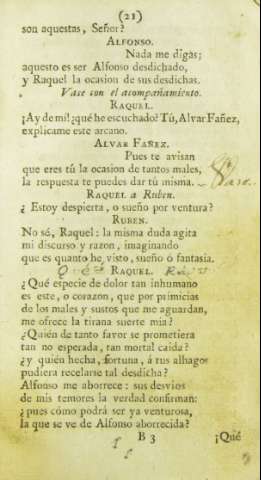 (21)
son aquestas, Señor?
ALFONSO.
Nada me digas;
aquesto es ser Alfonso desdichado,
y Raquel la ocasion de sus desdichas.
Vase con el acompañamiento.
RAQUEL.
¡Ay de mi! ¿qué he escuchado? Tú, Alvar Fañez,
explicame este arcano.
ALVAR FAÑEZ.
Pues te avisan
que eres tú la ocasion de tantos males,
la respuesta te puedes dar tú misma.
RAQUEL á Ruben.
¿Estoy despierta, o sueño por ventura?
RUBEN.
No sé, Raquel: la misma duda agita
mi discurso y razon, imaginando
que es quanto he visto, sueño ó fantasia.
RAQUEL.
¿Qué especie de dolor tan inhumano
es este, o corazon, que por primicias
de los males y sustos que me aguardan,
me ofrece la tirana suerte mia?
¿Quién de tanto favor se prometiera
tan no esperada, tan mortal caida?
¿y quién hecha, fortuna, á tus alhagos
pudiera recelarse tal desdicha?
Alfonso me aborrece: sus desvios
de mis temores la verdad confirman:
¿pues cómo podrá ser ya venturosa,
la que se ve de Alfonso aborrecida?
B 3 ¡Qué